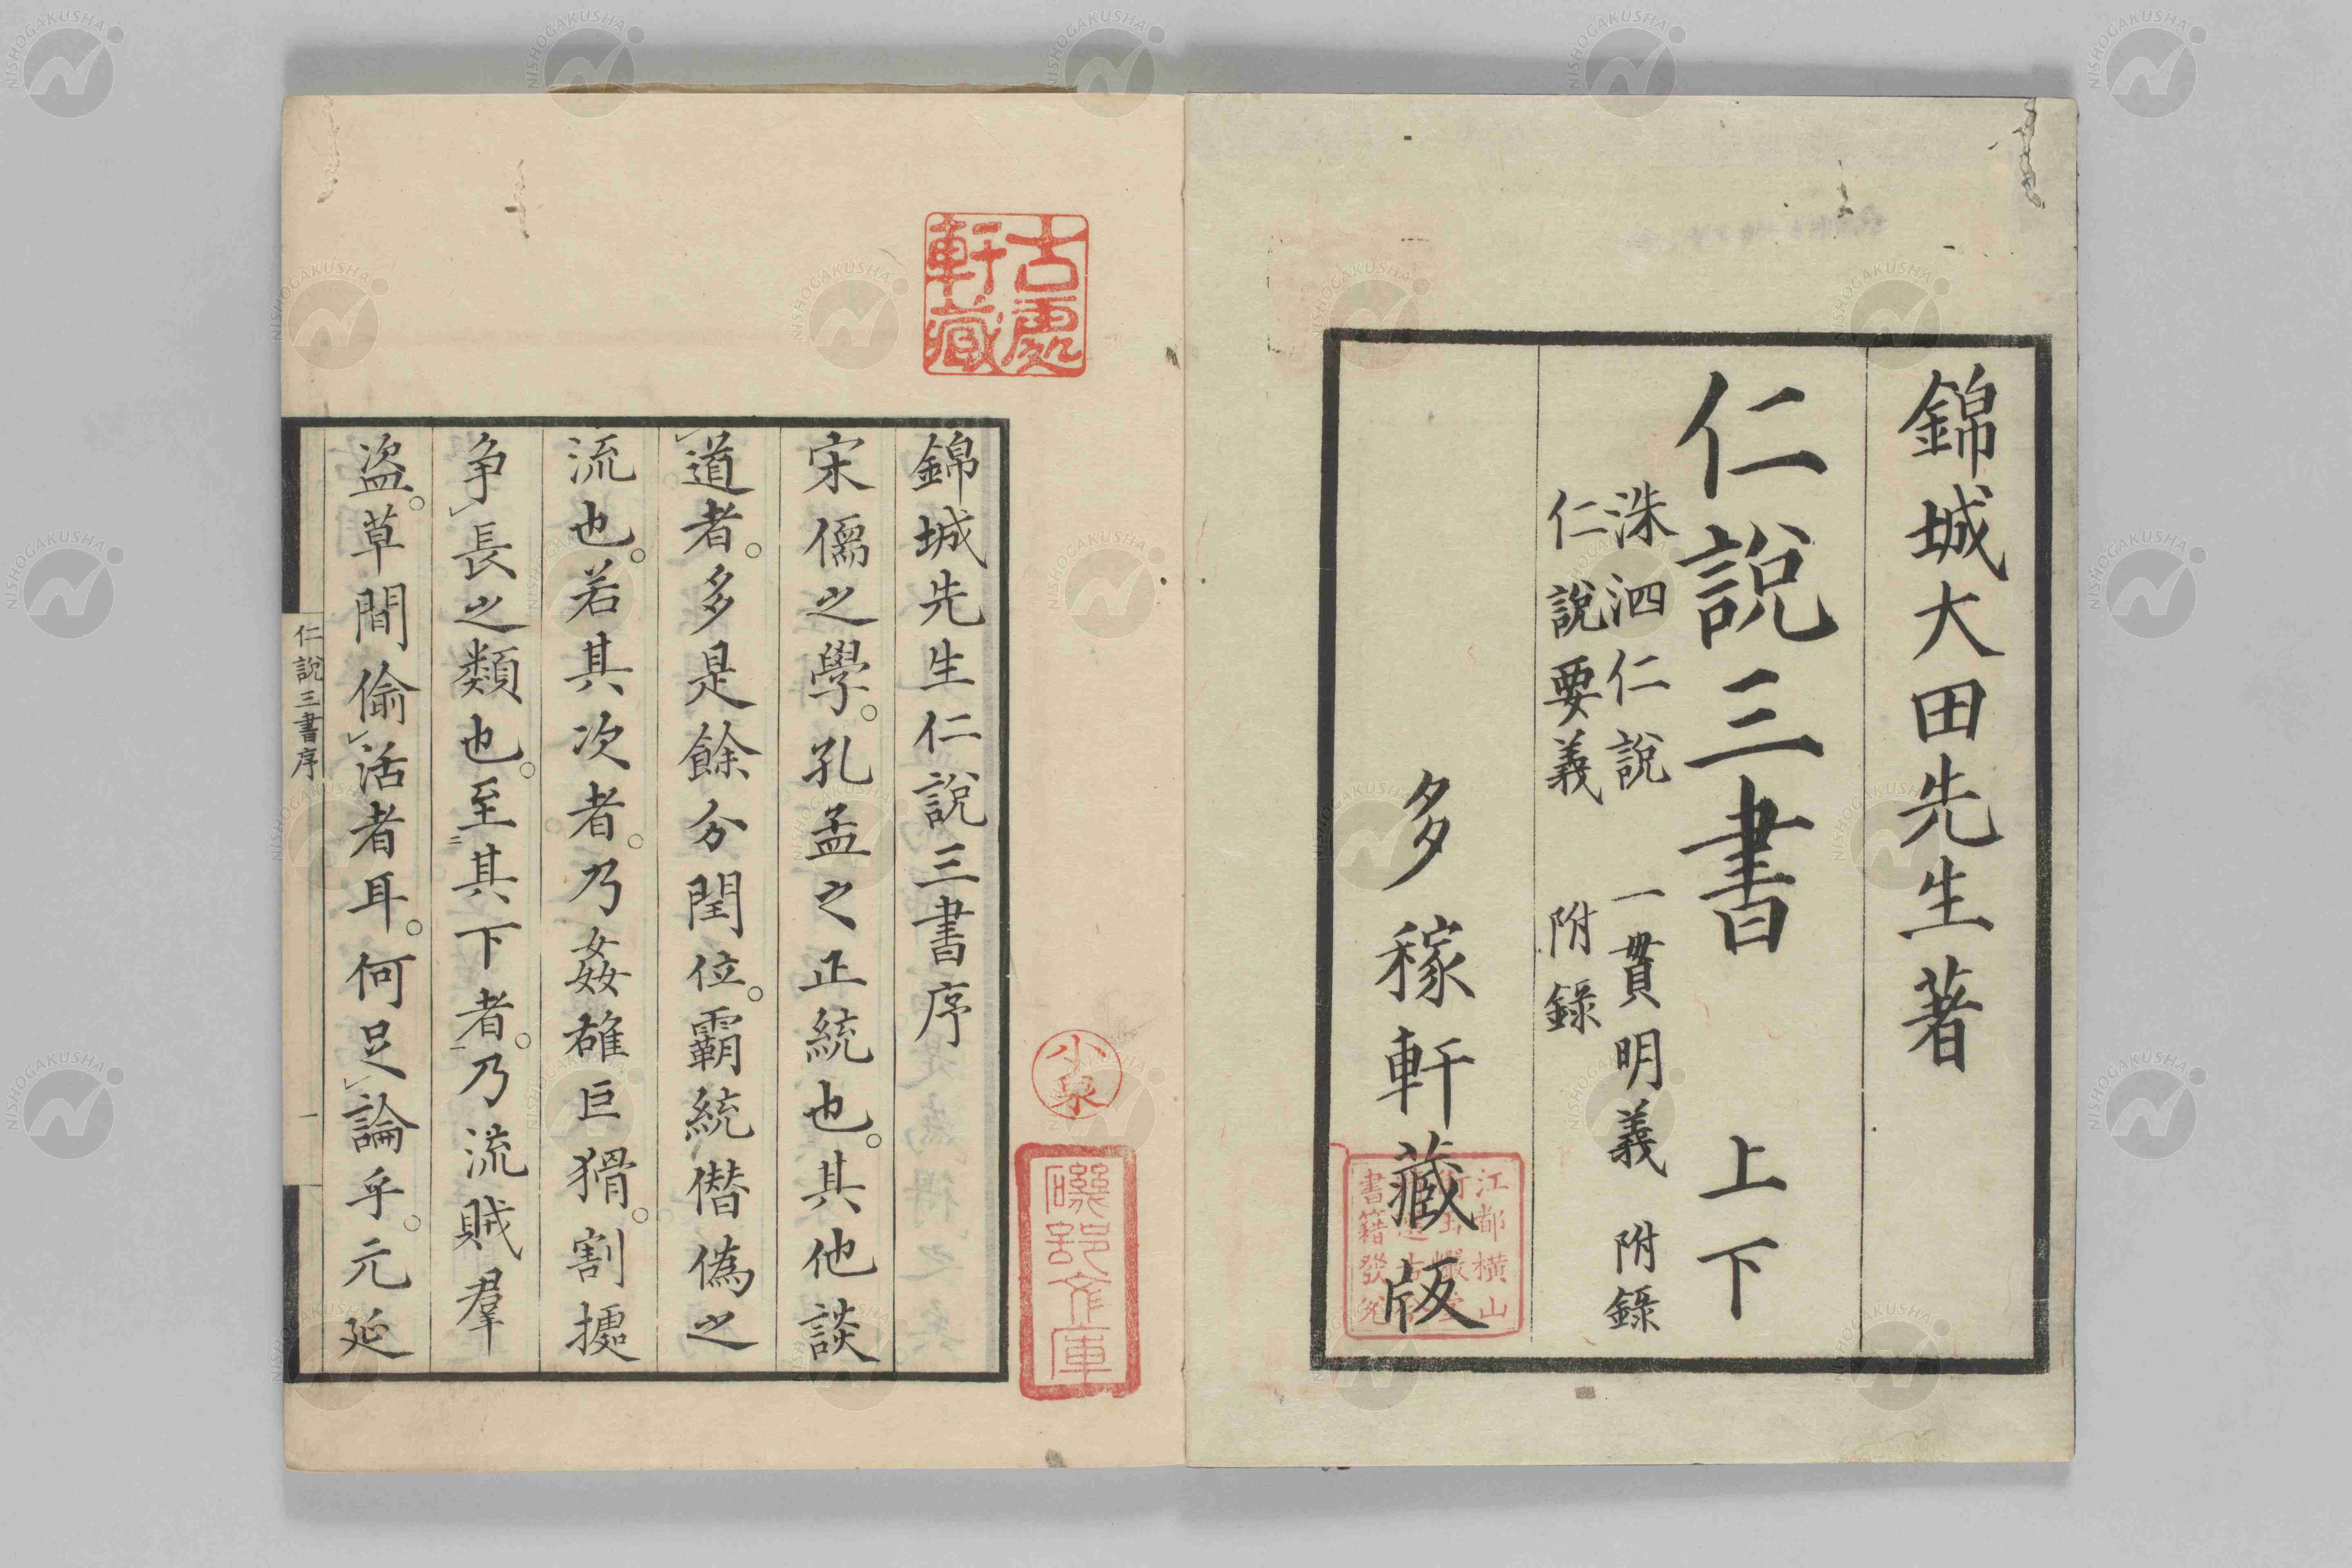 錦城大田先生著
仁說三書 上下
洙泗仁說 一貫明義 附錄
仁說要義 附錄
多稼軒藏版
江都橫山
書籍發兌
古處軒藏
小泉
磯部文庫
錦城先生仁說三書序
宋儒之學。孔孟之正統也。其他談
道者。多是餘分閏位。霸統僭偽之
流也。若其次者。乃姦雄巨猾。割據
爭長之類也。至其下者。乃流賊羣
盜。草間偷活者耳。何足論乎。元延
仁說三書序
一
NISHOGAKUSHA